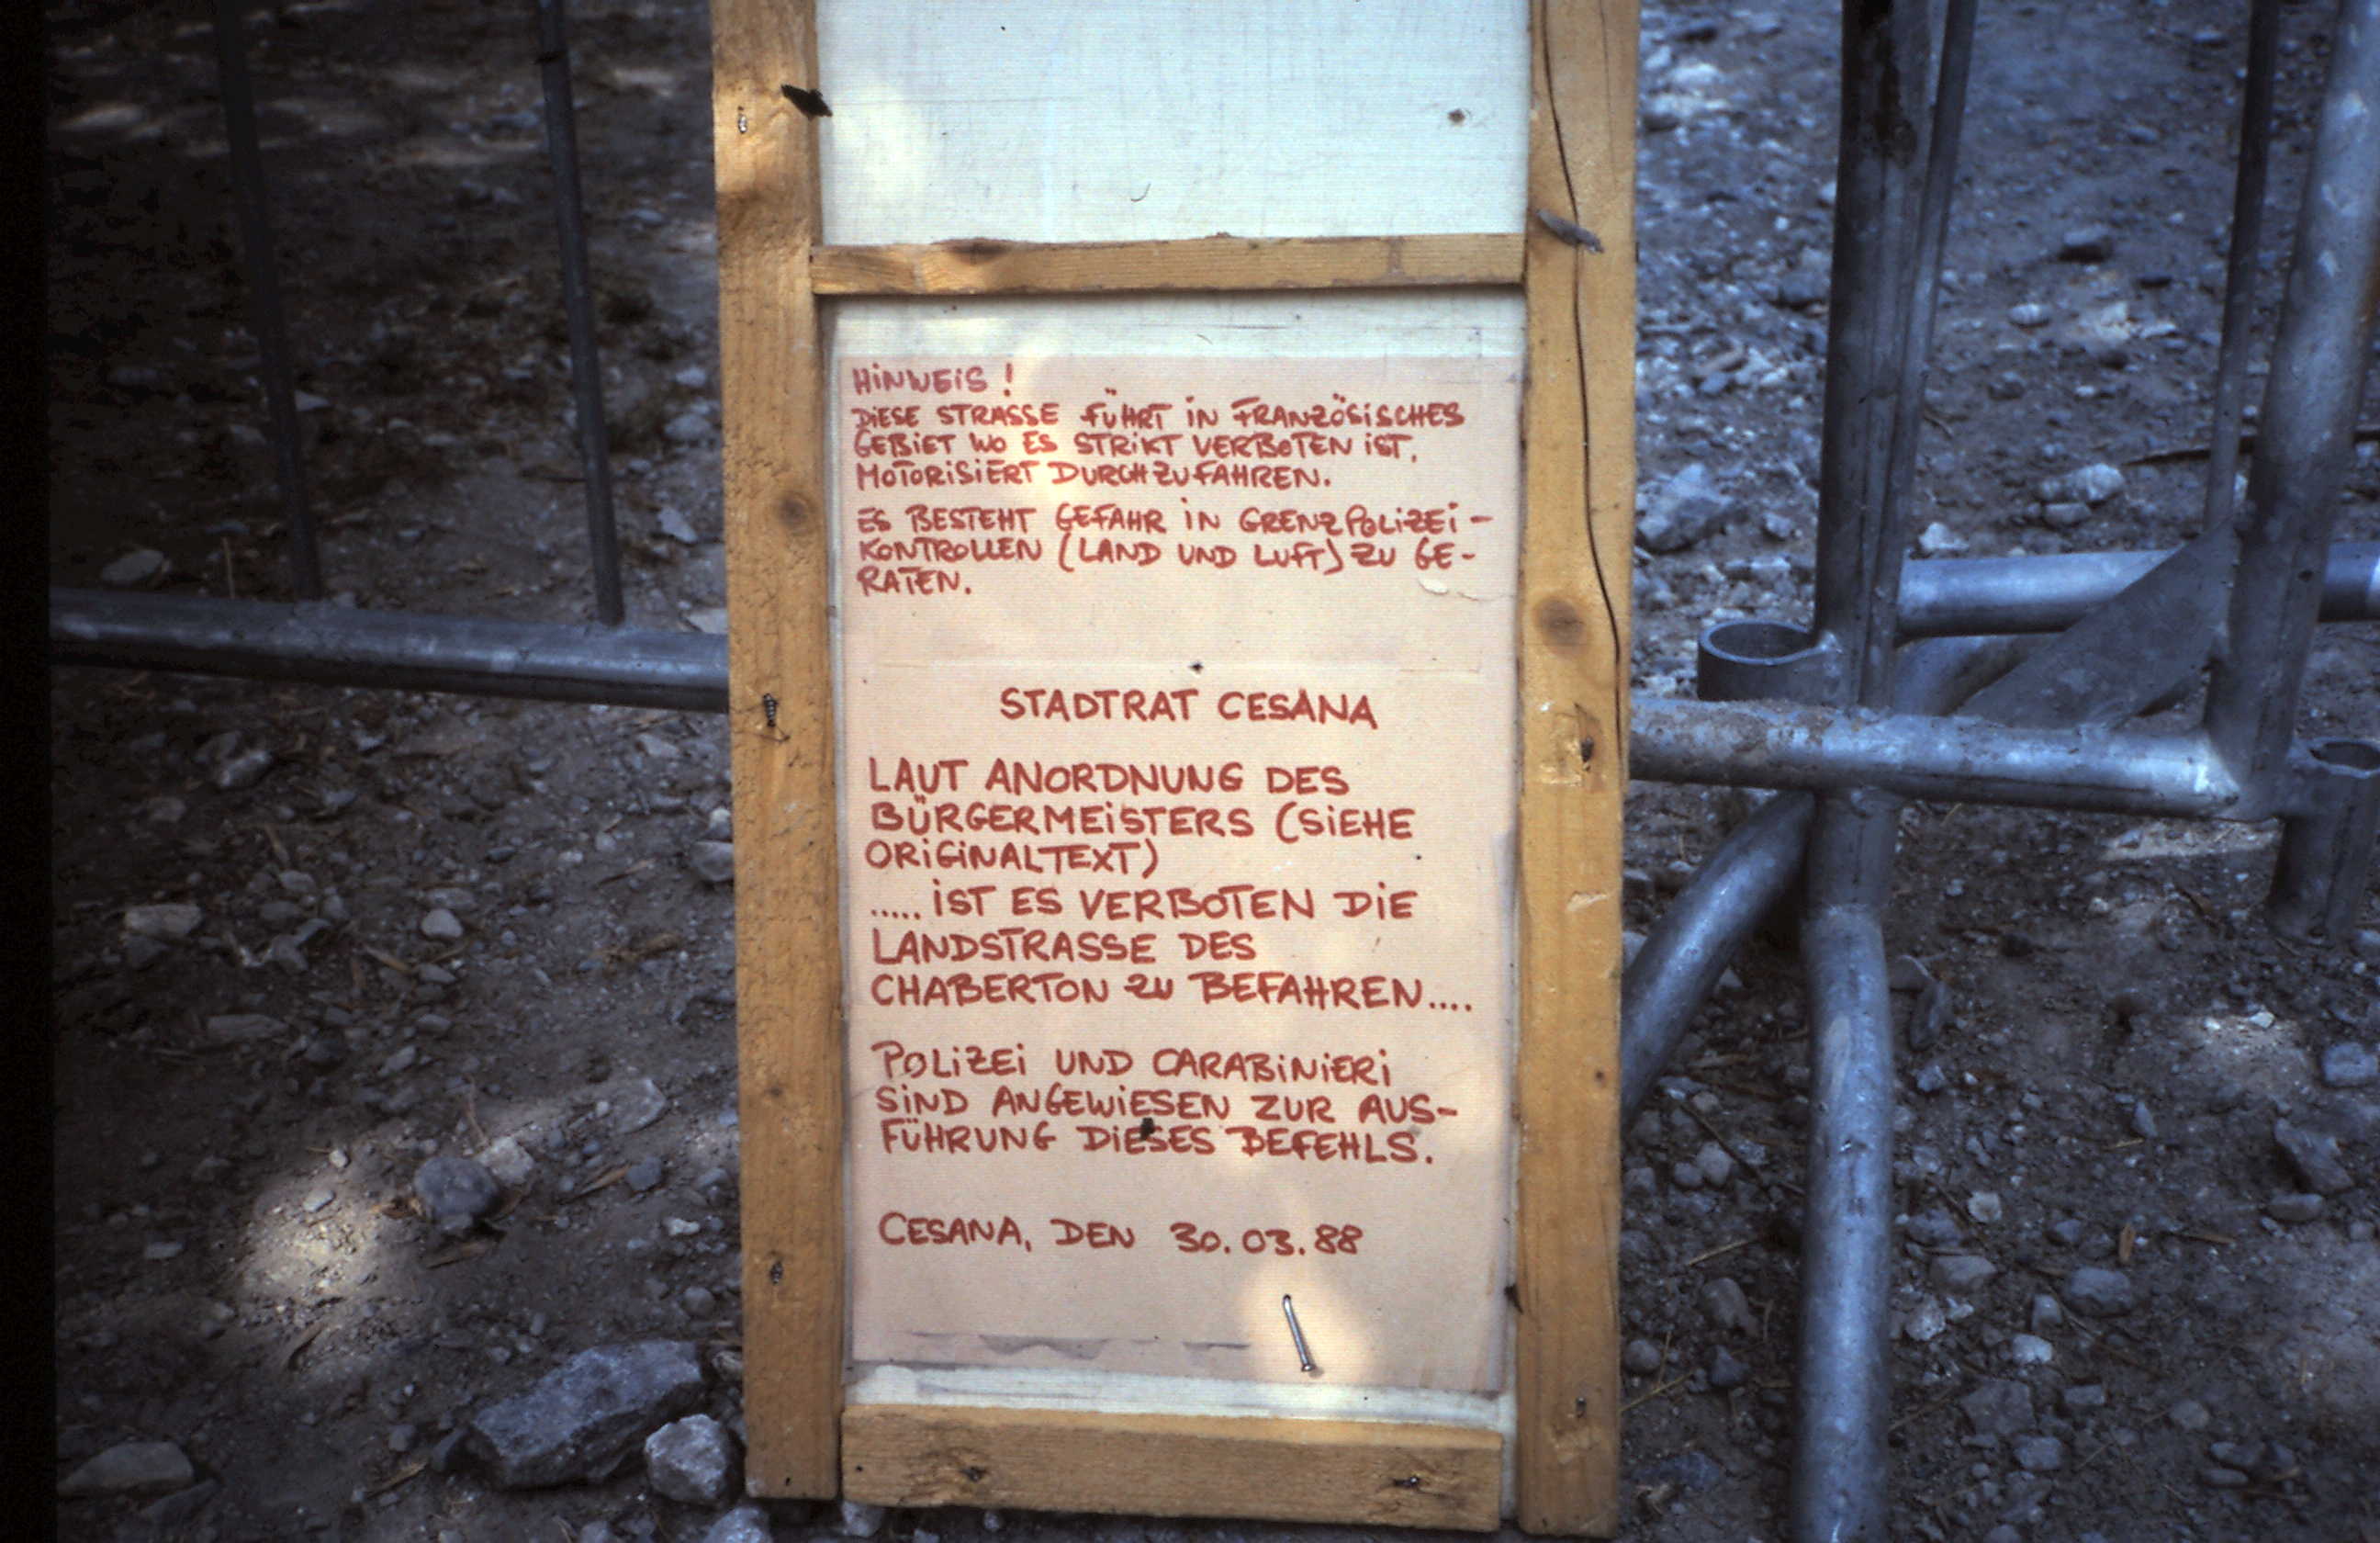 HINWEIS!
DIESE STRASSE FÜHRT IN FRANZÖSISCHES
GEBIET WO ES STRIKT VERBOTEN IST,
MOTORISIERT DURCHZUFAHREN.
ES BESTEHT GEFAHR IN GRENZPOLIZEI-
KONTROLLEN (LAND UND LUFT) ZU GE-
RATEN.
STADTRAT CESANA
LAUT ANORDNUNG DES
BÜRGERMEISTERS (SIEHE
ORIGINALTEXT)
..... IST ES VERBOTEN DIE
LANDSTRASSE DES
CHABERTON ZU BEFAHREN....
POLIZEI UND CARABINIERI
SIND ANGEWIESEN ZUR AUS-
FÜHRUNG DIESES BEFEHLS.
CESANA, DEN 30.03.88